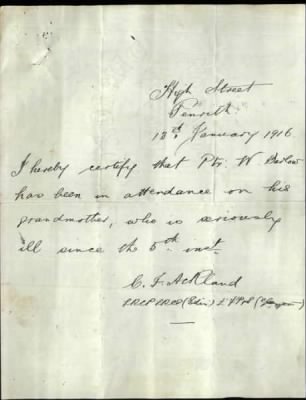 High Street
Penrith
13th January 1916
I hereby certify that Pte W Barlow
has been in attendance on his
grandmother, who is seriously
ill since the 5th inst.
C. F. Ackland
LRCP LRCS (Edin) L F P S (Glasgow)